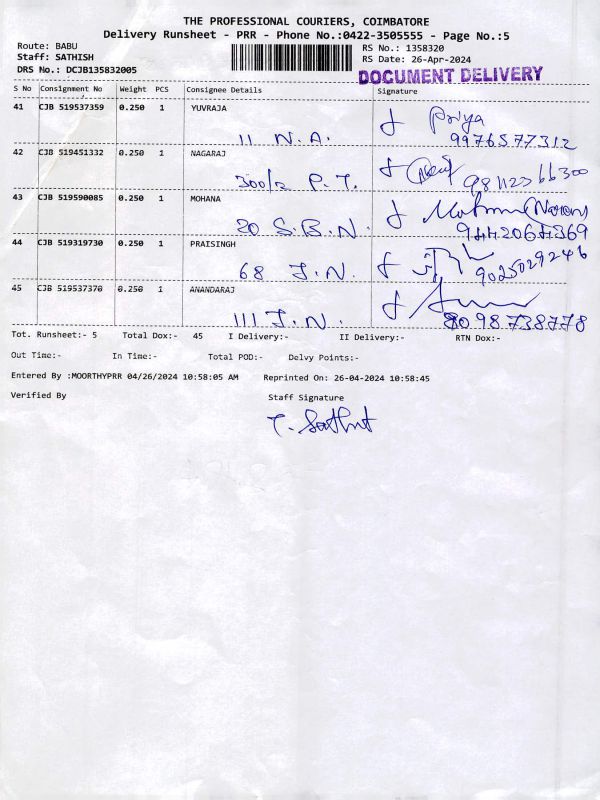 THE PROFESSIONAL COURIERS, COIMBATORE
Delivery Runsheet - PRR - Phone No.:0422-3505555 - Page No.:5
Route: BABU
Staff: SATHISH
DRS No.: DCJB135832005
RS No.: 1358320
RS Date: 26-Apr-2024
DOCUMENT DELIVERY
S No Consignment No Weight PCS Consignee Details Signature
41 CJB 519537359 0.250 1 YUVRAJA Priya
11 N.A. 9976577312
42 CJB 519451332 0.250 1 NAGARAJ
300/2 P.T.
43 CJB 519590085 0.250 1 MOHANA
20 S.B.N. 9442064369
44 CJB 519319730 0.250 1 PRAISINGH
68 J.N. 9025029246
45 CJB 519537370 0.250 1 ANANDARAJ
111 J.N. 8098738778
Tot. Runsheet:- 5 Total Dox:- 45 I Delivery:- II Delivery:- RTN Dox:-
Out Time:- In Time:- Total POD:- Delvy Points:-
Entered By :MOORTHYPRR 04/26/2024 10:58:05 AM Reprinted On: 26-04-2024 10:58:45
Verified By Staff Signature